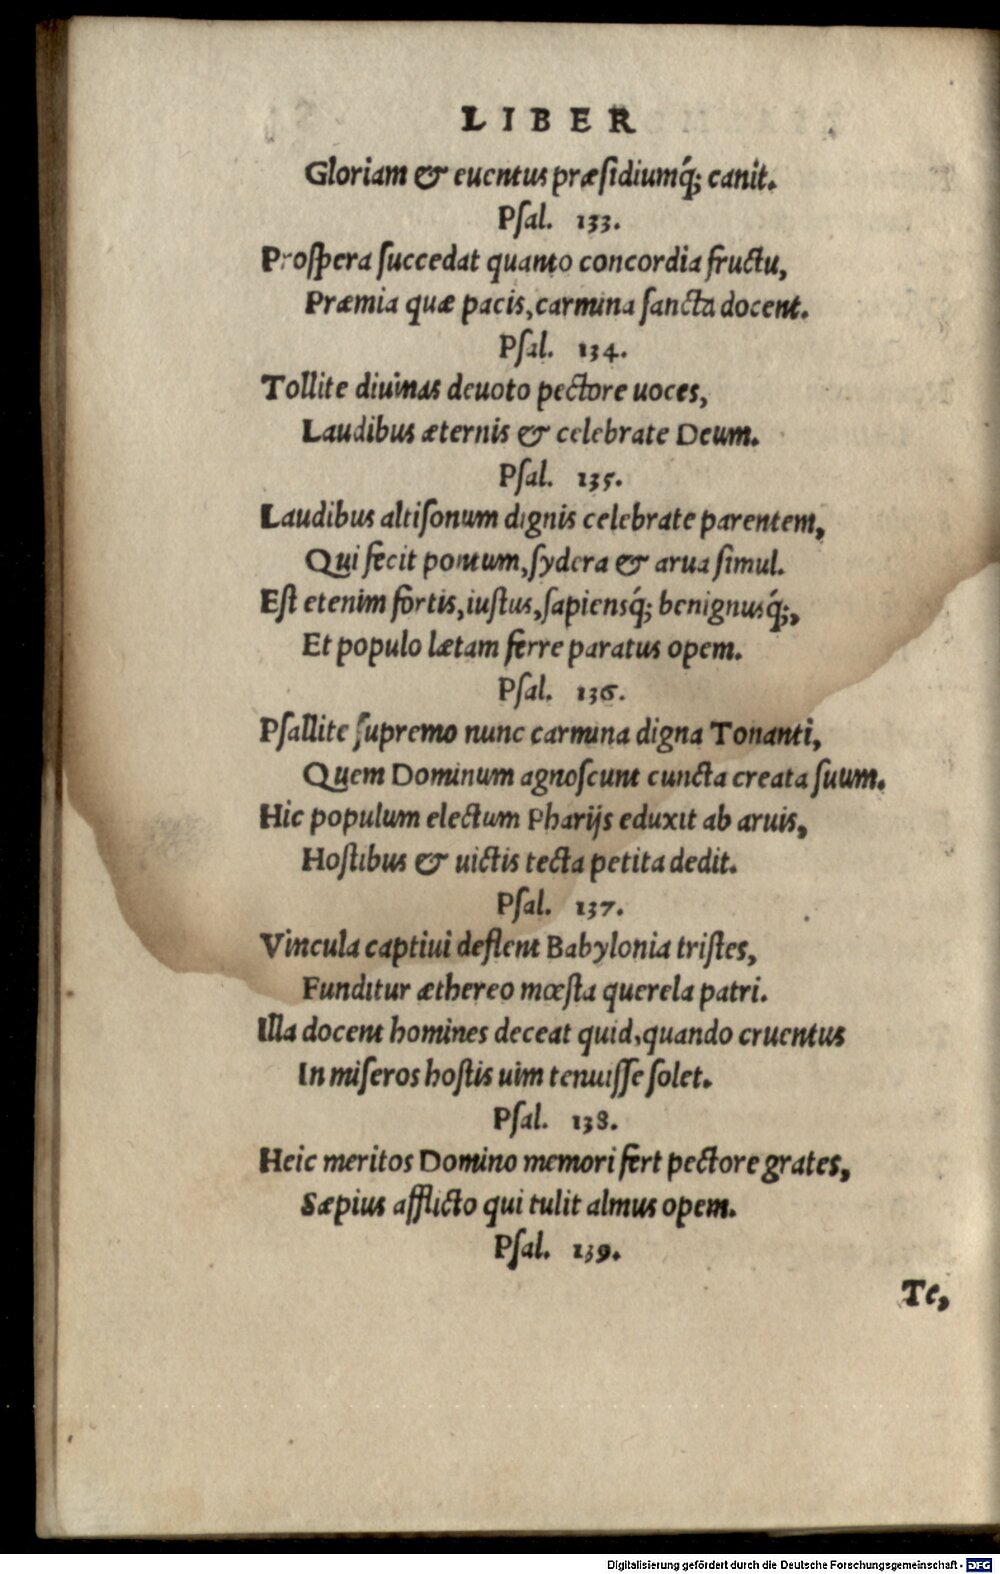 LIBER
Gloriam & euentus præsidiumq́; canit.
Psal. 133.
Prospera succedat quanto concordia fructu,
Præmia quæ pacis, carmina sancta docent.
Psal. 134.
Tollite diuinas deuoto pectore uoces,
Laudibus æternis & celebrate Deum.
Psal. 135.
Laudibus altisonum dignis celebrate parentem,
Qui fecit pontum, sydera & arua simul.
Est etenim fortis, iustus, sapiensq́; benignusq́;,
Et populo lætam ferre paratus opem.
Psal. 136.
Psallite supremo nunc carmina digna Tonanti,
Quem Dominum agnoscunt cuncta creata suum.
Hic populum electum Pharijs eduxit ab aruis,
Hostibus & uictis tecta petita dedit.
Psal. 137.
Vincula captiui deflent Babylonia tristes,
Funditur æthereo mœsta querela patri.
Illa docent homines deceat quid, quando cruentus
In miseros hostis uim tenuisse solet.
Psal. 138.
Heic meritos Domino memori fert pectore grates,
Sæpius afflicto qui tulit almus opem.
Psal. 139.
Te,
Digitalisierung gefördert durch die Deutsche Forschungsgemeinschaft - DFG